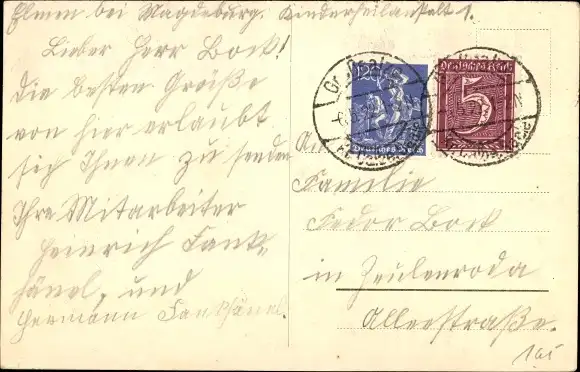 Elmen bei Magdeburg. Kinderheilanstalt 1.
Lieber Herr Bock!
die besten Grüße
von hier erlaubt
sich Ihnen zu senden
Ihre Mitarbeiter
Heinrich Fank=
hänel, und
Hermann Fankhänel.
Deutsches Reich
Deutsches Reich
5
An
Familie
Fedor Bock
in Zeulenroda
Allerstraße.
165